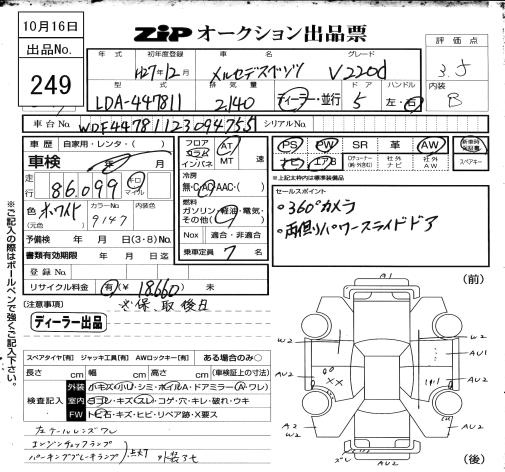 10月16日
出品No.
249
ZiP オークション出品票
年式 初年度登録 車名 グレード
H27年12月 メルセデスベンツ V220d
型式 排気量 ドア ハンドル
LDA-447811 2,140 ディーラー・並行 5 左・右
評価点
3.5
内装
B
車台No. WDF44781123094755 シリアルNo.
車歴 自家用・レンタ・( )
車検 年 月
走行 86,099 キロ マイル
色 ホワイト カラーNo. 9147 内装色
(元色)
予備検 年 月 日(3・8)No.
書類有効期限 年 月 日迄
登録No.
リサイクル料金 有(¥ 18,660 ) 未
フロア コラム インパネ AT MT 速
冷房
無・C・AC・AAC・( )
燃料
ガソリン・軽油・電気・その他( )
Nox 適合・非適合
乗車定員 7 名
PS PW SR 革 AW 新車時保証書
ナビ エアB 社外ナビ 社外AW スペアキー
※上記太枠内は標準装備品
セールスポイント
・360°カメラ
・両側パワースライドドア
※ご記入の際はボールペンで強くご記入下さい。
(注意事項) ※保、取後日
ディーラー出品
スペアタイヤ【有】 ジャッキ工具【有】 AWロックキー【有】 ある場合のみ○
長さ cm 幅 cm 高さ cm (車検証上の寸法)
検査記入
外装 小キズ・小凹・シミ・ボイルA・ドアミラー(A・ワレ)
室内 ヨゴレ・キズ・スレ・コゲ・穴・キレ・破れ・ウキ
FW トビ石・キズ・ヒビ・リペア跡・X要ス
左テールレンズワレ
エンジンチェックランプ
パーキングブレーキランプ 点灯 外装アセ
(前)
A1
W2 W2
W2 AU1
AU2 AU2
A2
W2 AU2
ズレ
(後)